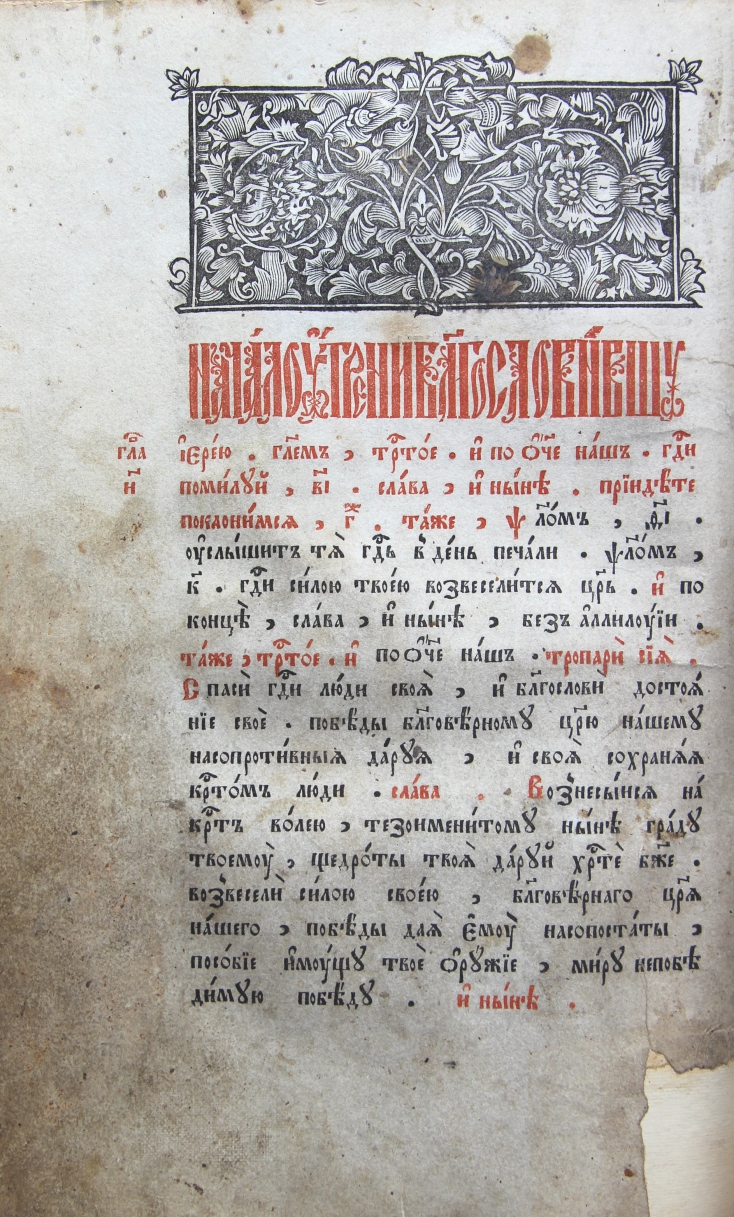 Нача́ло ᲂу҆́трени бл҃гослови́вшу
гл҃а
и҃
і҆ере́ю . гл҃емъ , трⷭ҇то́е . и҆ по ѻ҆́ч҃е на́шъ . гдⷭ҇и
поми́луй , в҃і . сла́ва , и҆ ны́нѣ . прїиди́те
поклони́мся , г҃ . та́же , ѱало́мъ , ѳ҃і .
ᲂу҆слы́шитъ тѧ̀ гдⷭ҇ь в де́нь печа́ли . ѱало́мъ ,
к҃ . гдⷭ҇и си́лою твое́ю возвесели́тся цр҃ь . и҆ по
конце́ , сла́ва , и҆ ны́нѣ , без̾ а҆ллилоу́їи .
та́же , трⷭ҇то́е . и҆ по ѻ҆́ч҃е на́шъ . тропарѝ сїѧ̀ .
Спасѝ гдⷭ҇и лю́ди своѧ̀ , и҆ бл҃гословѝ достоѧ́
нїе своѐ . побѣ́ды бл҃говѣ́рному цр҃ю на́шему
насопроти́вныѧ да́руѧ , и҆ своѧ̀ сохранѧ́ѧ
крⷭ҇то́мъ лю́ди . сла́ва . Вознесы́исѧ на́
крⷭ҇тъ во́лею , тезоимени́тому ны́нѣ гра́ду
твоемоу̀ , щедро́ты твоѧ̀ да́руй хрⷭ҇тѐ бж҃е .
возвеселѝ си́лою свое́ю , бл҃говѣ́рнаго цр҃ѧ
на́шего , побѣ́ды даѧ̀ є҆моу̀ насопоста́ты ,
посо́бїе и҆моу́щу твоѐ ѻ҆ру́жїе , ми́ру непобѣ
ди́мую побѣ́ду . и҆ ны́нѣ .